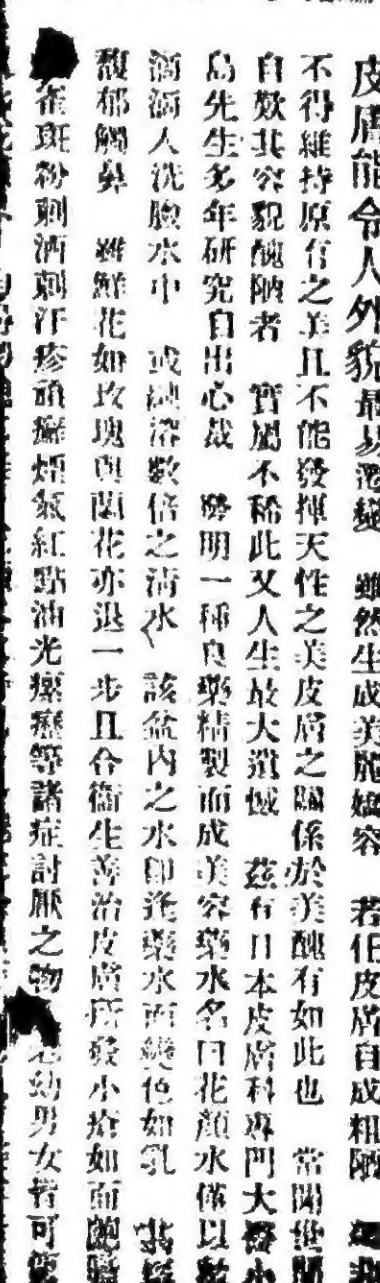 皮膚能令人外貌最易惹 雖然生成美麗嬌容 若任皮膚自成粗陋
不得維持原有之美且不能發揮天性之美皮膚之關係於美醜有如此也 常聞世間
自歎其容貌醜陋者 實屬不稀此又人生最大遺憾 茲有日本皮膚科專門大醫小
島先生多年研究自出心裁 發明一種良藥精製而成美容藥水名曰花顏水僅以數
滴滴人洗臉水中 或 溶數倍之清水 該盆內之水即逢藥水而變色如乳 其
馥郁觸鼻 雖鮮花如玫瑰與蘭花亦退一步且合衛生善治皮膚所發小瘡如面皰
雀斑粉刺酒刺汗疹頑癬煙氣紅點油光瘰癧等諸症討厭之物 幼男女皆可